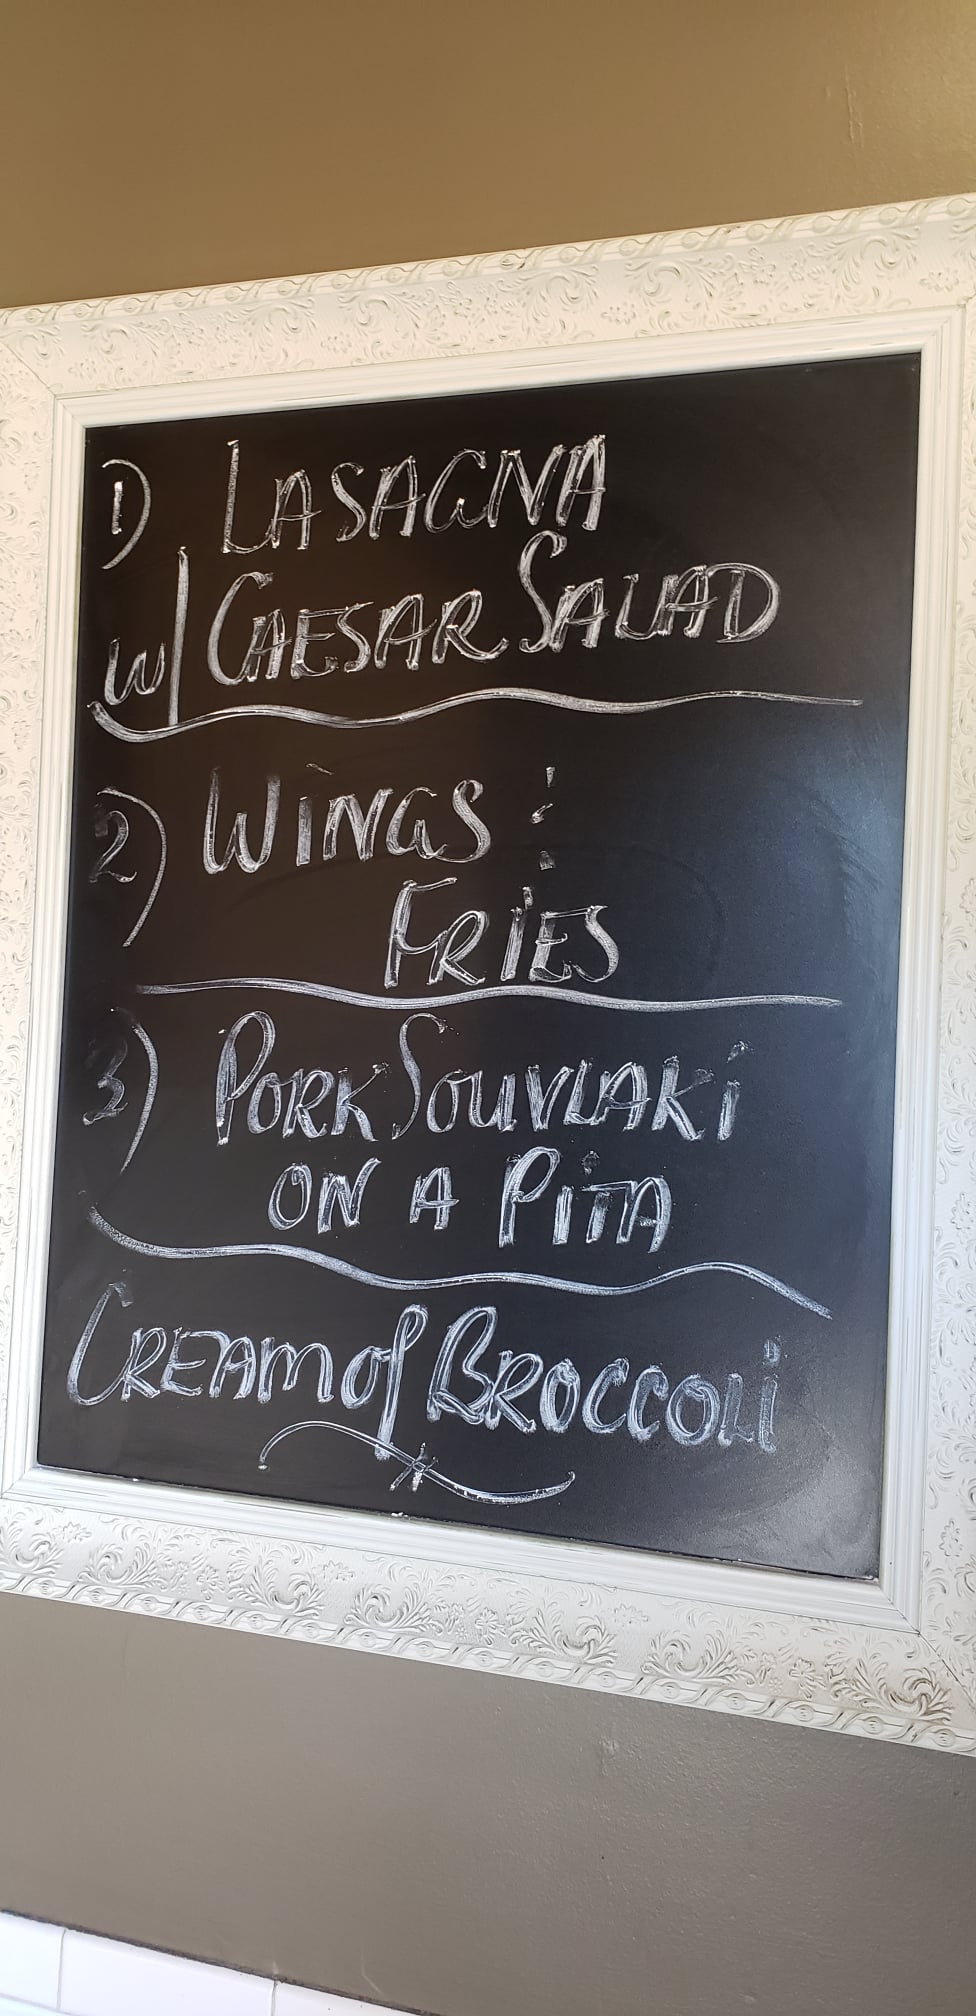 1) LASAGNA
w/ CAESAR SALAD
2) WiNGS :
FRiES
3) PORK SOUVLAKi
ON A PiTA
CREAM of BROCCOLi